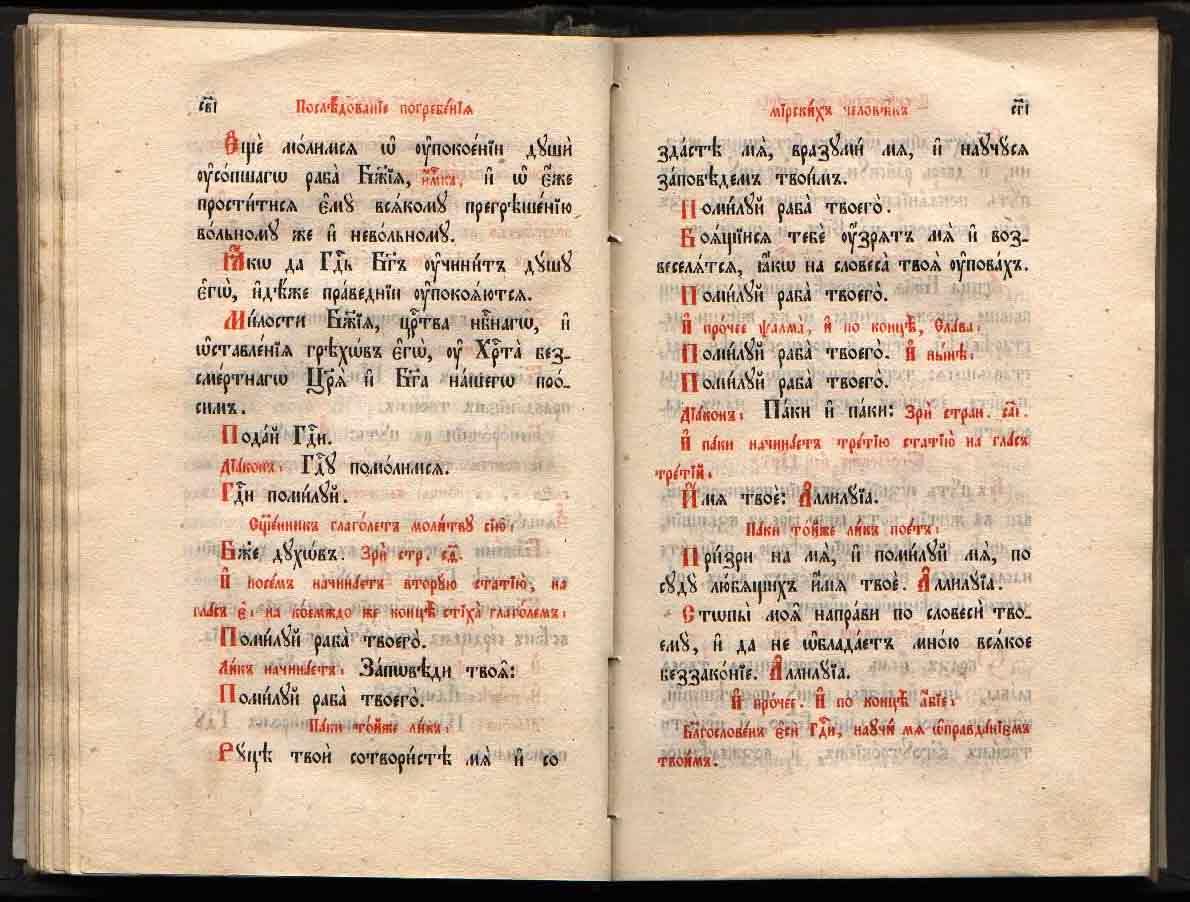 св҃і
Послѣ́дованіе погребе́нія
Є҆щѐ мо́лимся ѡ҆ ᲂу҆покое́нїи дꙋшѝ
ᲂу҆со́пшагѡ раба̀ Бж҃їѧ, и҆́мкъ, и҆ ѡ҆ є҆́же
прости́тисѧ є҆мꙋ̀ всѧ́комꙋ прегрѣше́нїю
во́льномꙋ же и҆ нево́льномꙋ.
Ꙗ҆́кѡ да Гдⷭ҇ь Бг҃ъ ᲂу҆чини́тъ дꙋ́шꙋ
є҆гѡ̀, и҆дѣ́же пра́веднїи ᲂу҆покоѧ́ютсѧ.
Ми́лости Бж҃їѧ, црⷭ҇тва нбⷭ҇нагѡ, и҆
ѡ҆ставле́нїѧ грѣхѡ́въ є҆гѡ̀, ᲂу҆ Хрⷭ҇та̀ без-
сме́ртнагѡ Цр҃ѧ̀ и҆ Бг҃а на́шегѡ про́-
симъ.
Пода́й Гдⷭ҇и.
Дїа́конъ: Гдⷭ҇ꙋ помо́лимсѧ.
Гдⷭ҇и поми́лꙋй.
Сщ҃е́нникъ глаго́летъ моли́твꙋ сїю̀:
Бж҃е дꙋхѡ́въ. Зрѝ стр. са҃.
И҆ посе́мъ начина́етъ вторꙋ́ю статїю̀, на
гла́съ є҃: на ко́емждо же концѣ̀ стїха̀ глаго́лемъ:
Поми́лꙋй раба̀ твоего̀.
Ли́къ начина́етъ: За́повѣди твоѧ̑:
Поми́лꙋй раба̀ твоего̀.
Па́ки то́йже ли́къ:
Рꙋ́цѣ твоѝ сотвори́стѣ мѧ̀ и҆ со
сг҃і
мїрски́хъ человѣ́къ
зда́стѣ мѧ̀, вразꙋми́ мѧ, и҆ наꙋчꙋ́сѧ
за́повѣдемъ твои̑мъ.
Поми́лꙋй раба̀ твоего̀.
Боѧ́щїисѧ тебє̀ ᲂу҆́зрѧтъ мѧ̀ и҆ воз-
веселѧ́тсѧ, ꙗ҆́кѡ на словеса̀ твоѧ̑ ᲂу҆пова́хъ.
Поми́лꙋй раба̀ твоего̀.
И҆ про́чее ѱалма̀, и҆ по концѣ̀, Сла́ва:
Поми́лꙋй раба̀ твоего̀. И҆ ны́нѣ:
Поми́лꙋй раба̀ твоего̀.
Дїа́конъ: Па́ки и҆ па́ки: Зрѝ стран. са҃і.
И҆ па́ки начина́етъ тре́тїю статїю̀ на гла́съ
тре́тїй:
И҆́мѧ твоѐ: А҆ллилꙋ́їа.
Па́ки то́йже ли́къ пое́тъ:
При́зри на мѧ̀, и҆ поми́лꙋй мѧ̀, по
сꙋдꙋ̀ лю́бѧщихъ и҆́мѧ твоѐ. А҆ллилꙋ́їа.
Стѡпы̀ моѧ̑ напра́ви по словесѝ тво-
емꙋ̀, и҆ да не ѡ҆блада́етъ мно́ю всѧ́кое
беззако́нїе. А҆ллилꙋ́їа.
И҆ про́чее. И҆ по концѣ̀ а҆́бїе:
Блгⷭ҇ове́нъ є҆сѝ Гдⷭ҇и, наꙋчи́ мѧ ѡ҆правда́нїємъ
твои̑мъ.